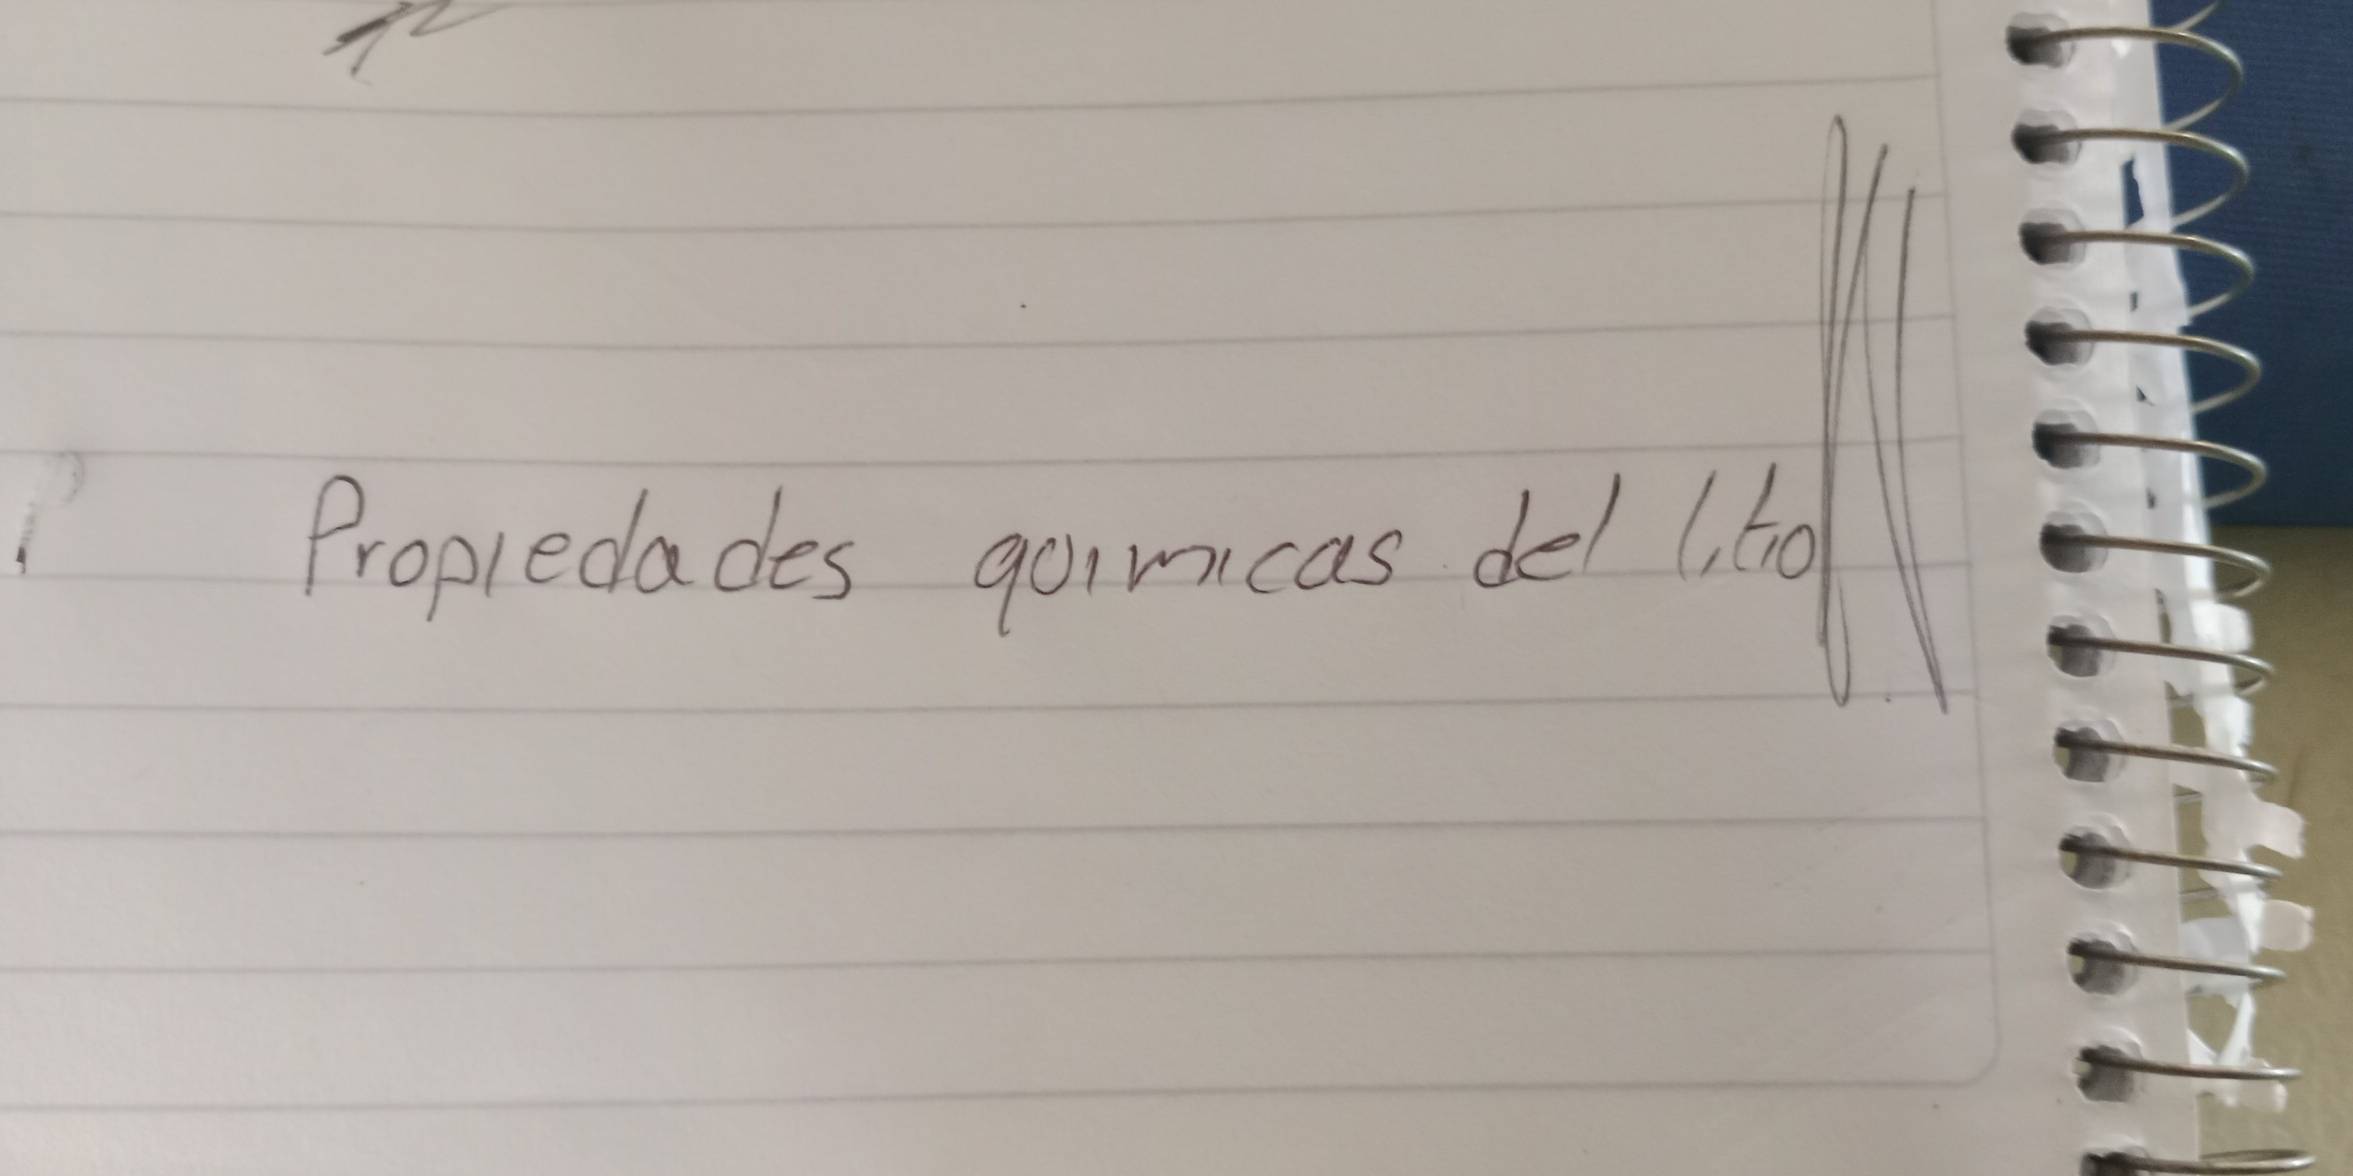 Propiedades quimicas del litio